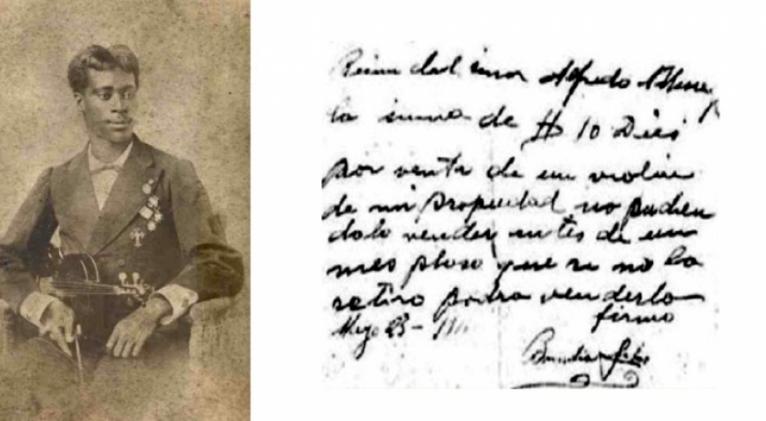 del senor Alfredo
la suma de $ 10 Dies
por venta de un violin
de mi propiedad no pudien
dolo vender antes de un
mes plaso que si no lo
retiro podra venderlo
firmo
Mayo 23-